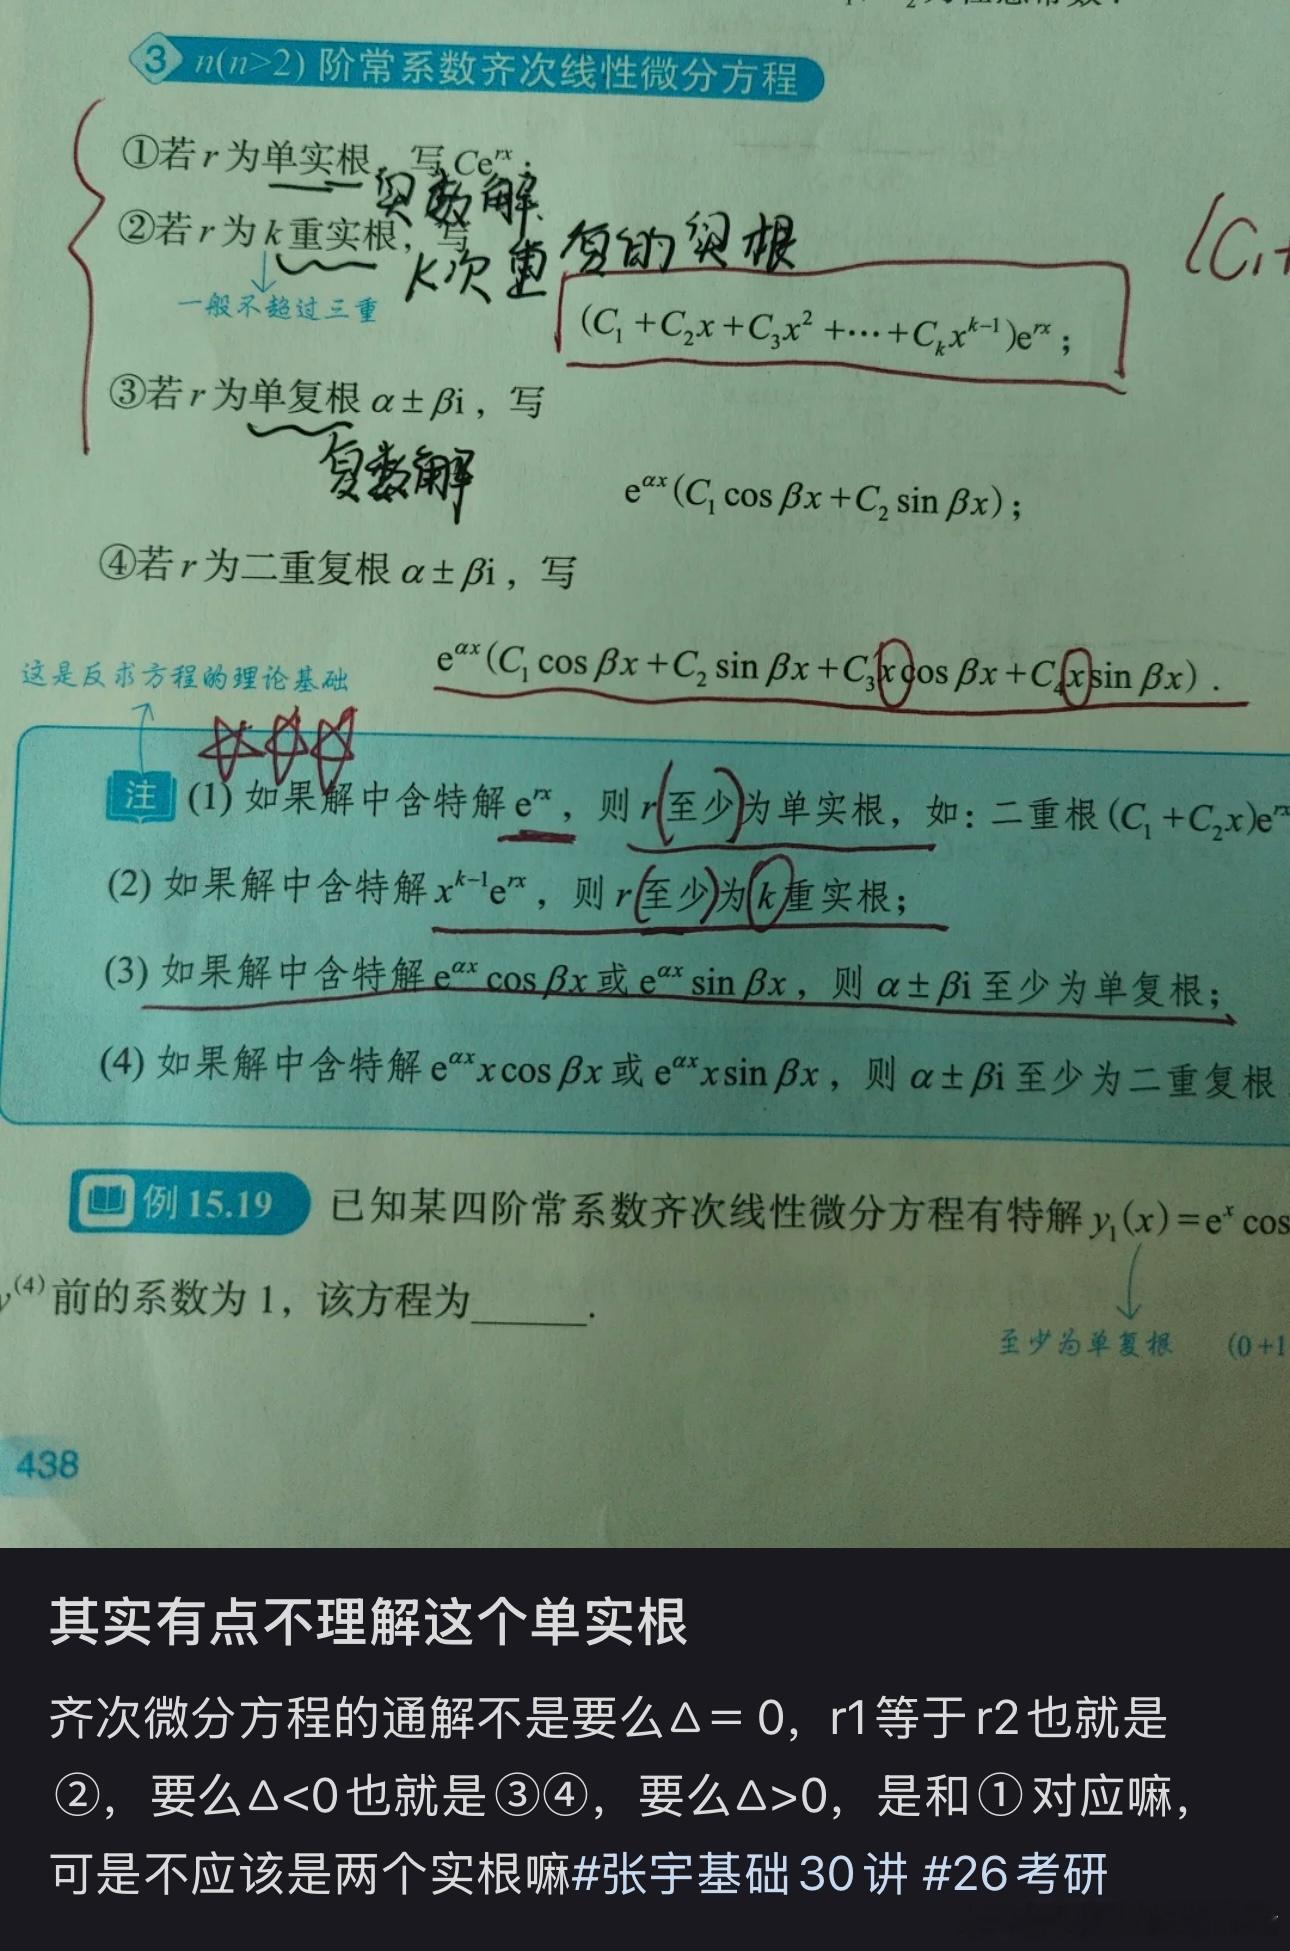 ③ n(n>2) 阶常系数齐次线性微分方程
①若 r 为单实根，写 Ceʳˣ；
实数解
②若 r 为 k 重实根，写
K次重复的实根
(C₁+
一般不超过三重
(C₁+C₂x+C₃x²+⋯+Cₖxᵏ⁻¹)eʳˣ；
③若 r 为单复根 α±βi，写
复数解
e^{αx}(C₁cos βx+C₂sin βx)；
④若 r 为二重复根 α±βi，写
e^{αx}(C₁cos βx+C₂sin βx+C₃xcos βx+C₄xsin βx).
这是反求方程的理论基础
注 (1) 如果解中含特解 eʳˣ，则 r 至少为单实根，如：二重根 (C₁+C₂x)eʳˣ
(2) 如果解中含特解 xᵏ⁻¹eʳˣ，则 r 至少为 k 重实根；
(3) 如果解中含特解 e^{αx}cos βx 或 e^{αx}sin βx，则 α±βi 至少为单复根；
(4) 如果解中含特解 e^{αx}xcos βx 或 e^{αx}xsin βx，则 α±βi 至少为二重复根
例 15.19 已知某四阶常系数齐次线性微分方程有特解 y₁(x)=eˣcos
y⁽⁴⁾前的系数为 1，该方程为______.
至少为单复根 (0+1
438
其实有点不理解这个单实根
齐次微分方程的通解不是要么△＝0，r1等于r2也就是
②，要么△<0也就是③④，要么△>0，是和①对应嘛，
可是不应该是两个实根嘛#张宇基础30讲 #26考研